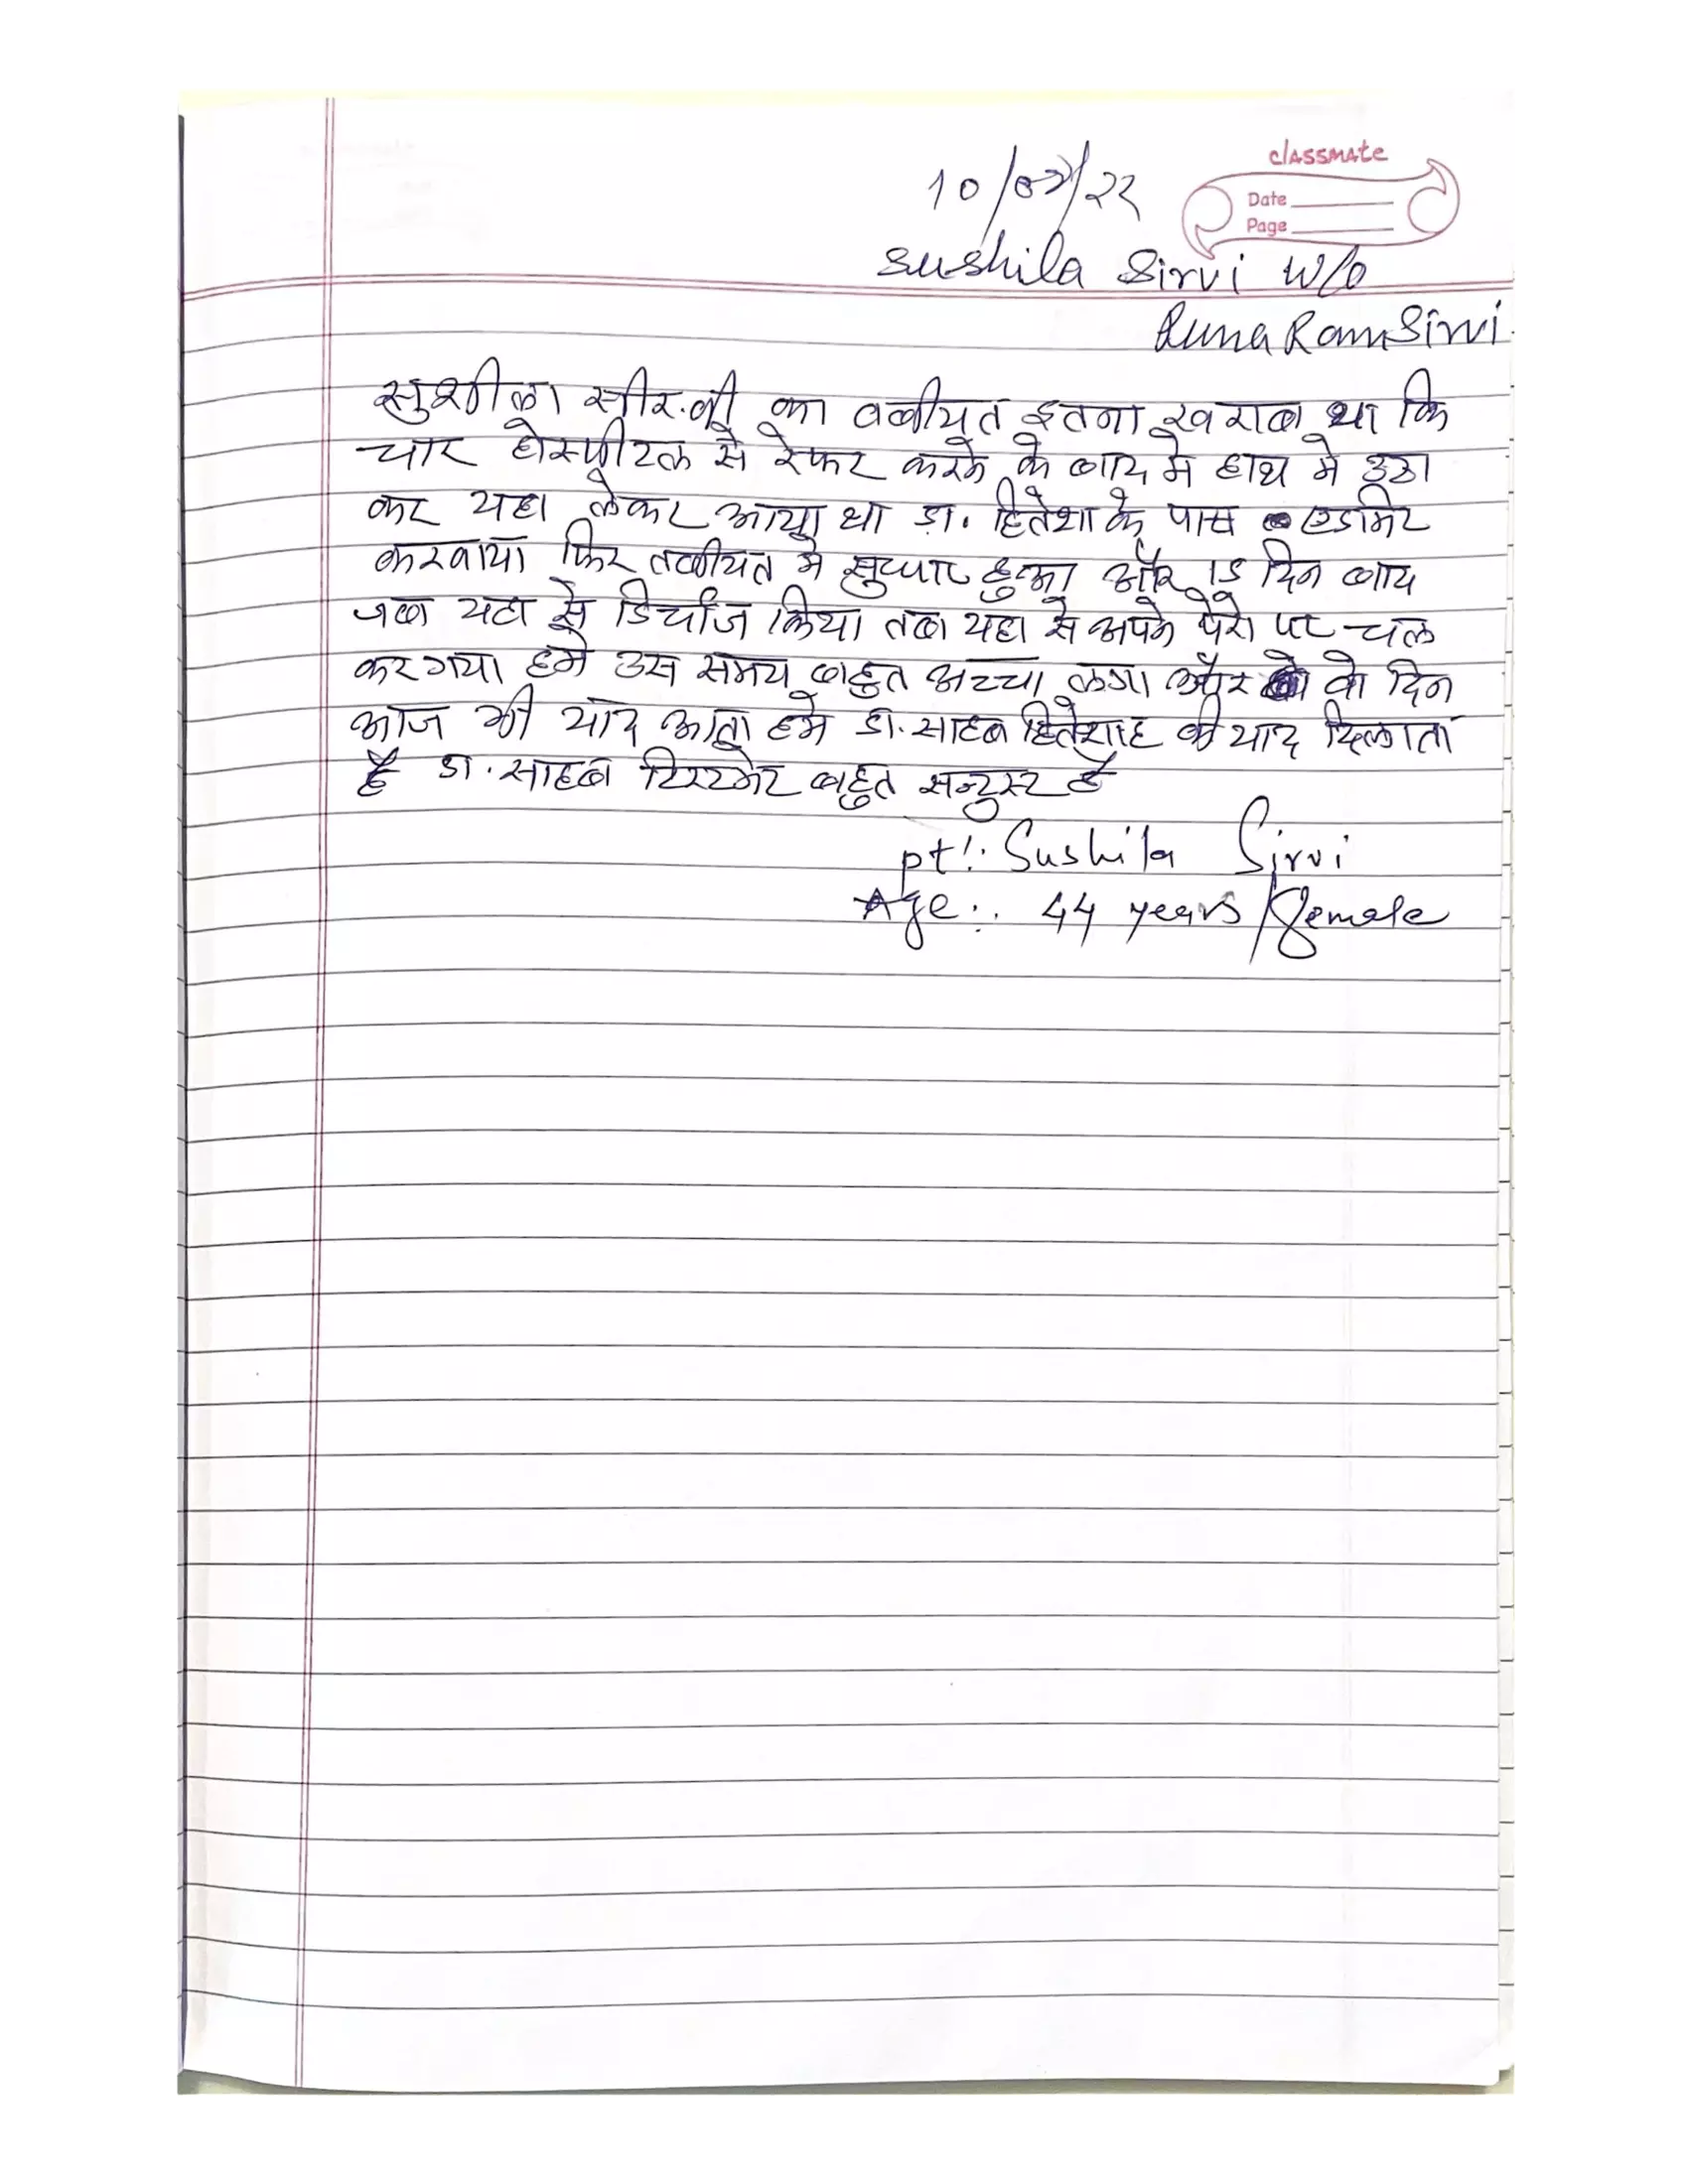 classmate
Date
Page
10/02/22
Sushila Sirvi W/o
Runa Ram Sirvi
सुशीला सीर.वी का तबीयत इतना खराब था कि
चार होस्पीटल से रेफर करके के बाद मे हाथ मे उठा
कर यहा लेकर आया था डा. हितेशा के पास एडमिट
करवाया फिर तबीयत मे सुधार हुआ और 15 दिन बाद
जब यहा से डिर्चाज किया तब यहा से अपके पैरो पर चल
कर गया हमे उस समय बहुत अच्चा लगा और वो दिन
आज भी याद आता हमे डा.साहब हितेशाह की याद दिलाता
है डा.साहब बहुत सन्टुस्ट है
pt:. Sushila Sirvi
Age:. 44 years/female